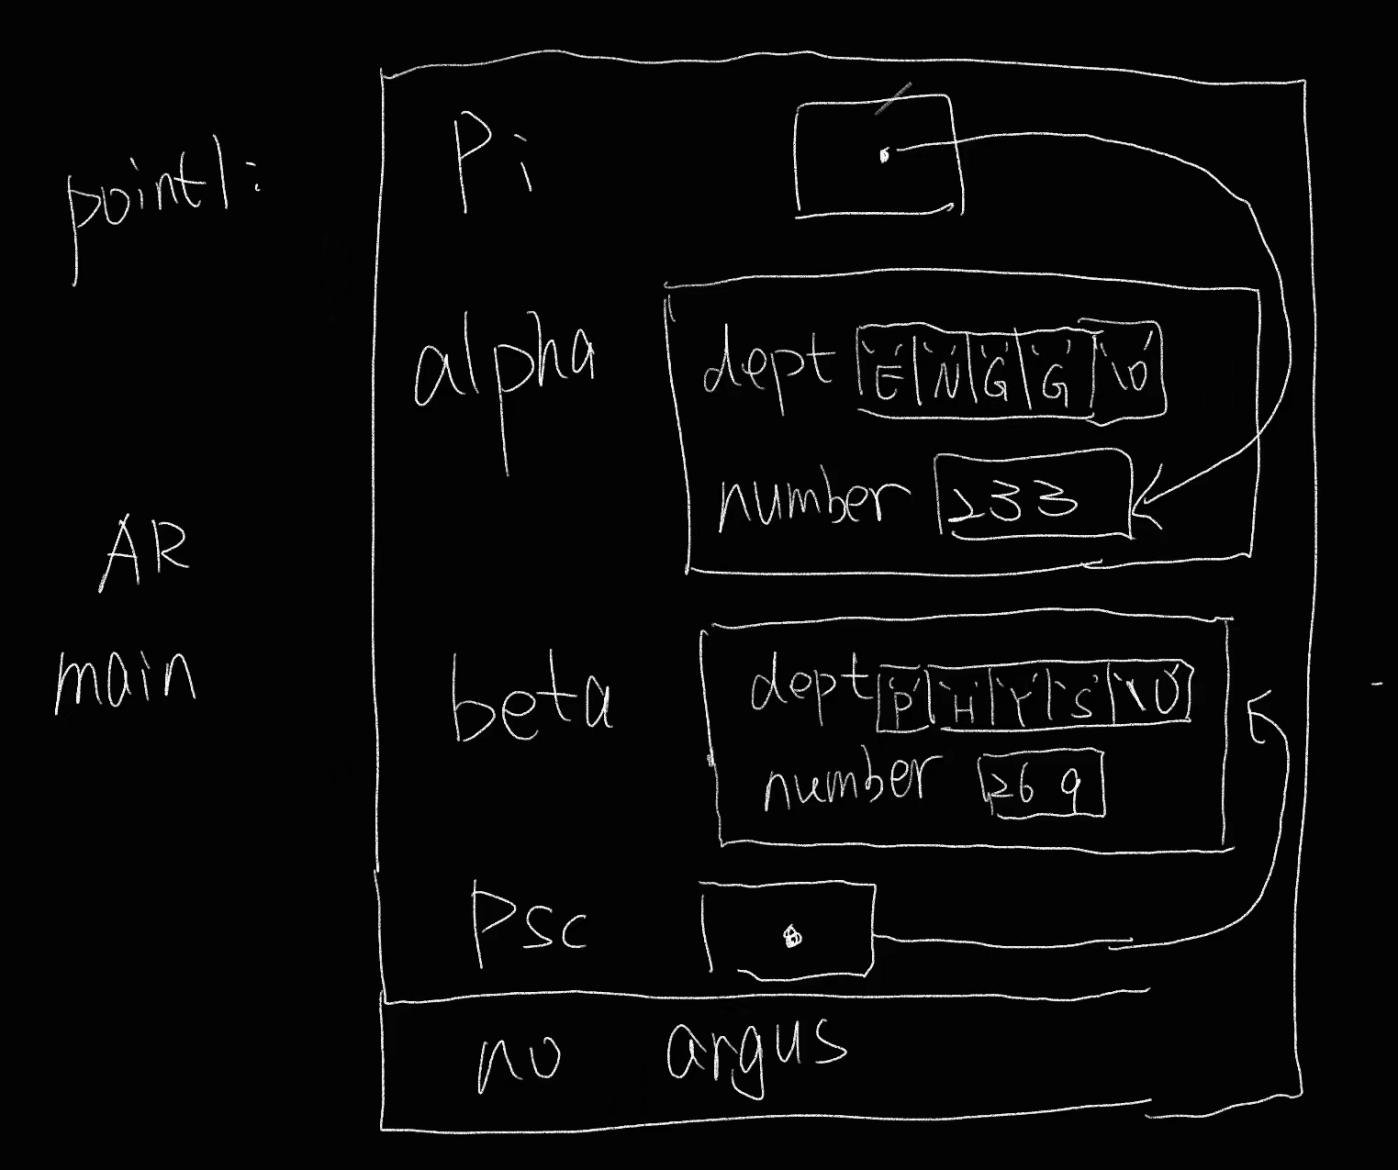 point1:
Pi
alpha
dept 'E' 'N' 'G' 'G' '\0'
number 233
AR
main
beta
dept 'P' 'H' 'Y' 'S' '\0'
number 269
Psc
no argus